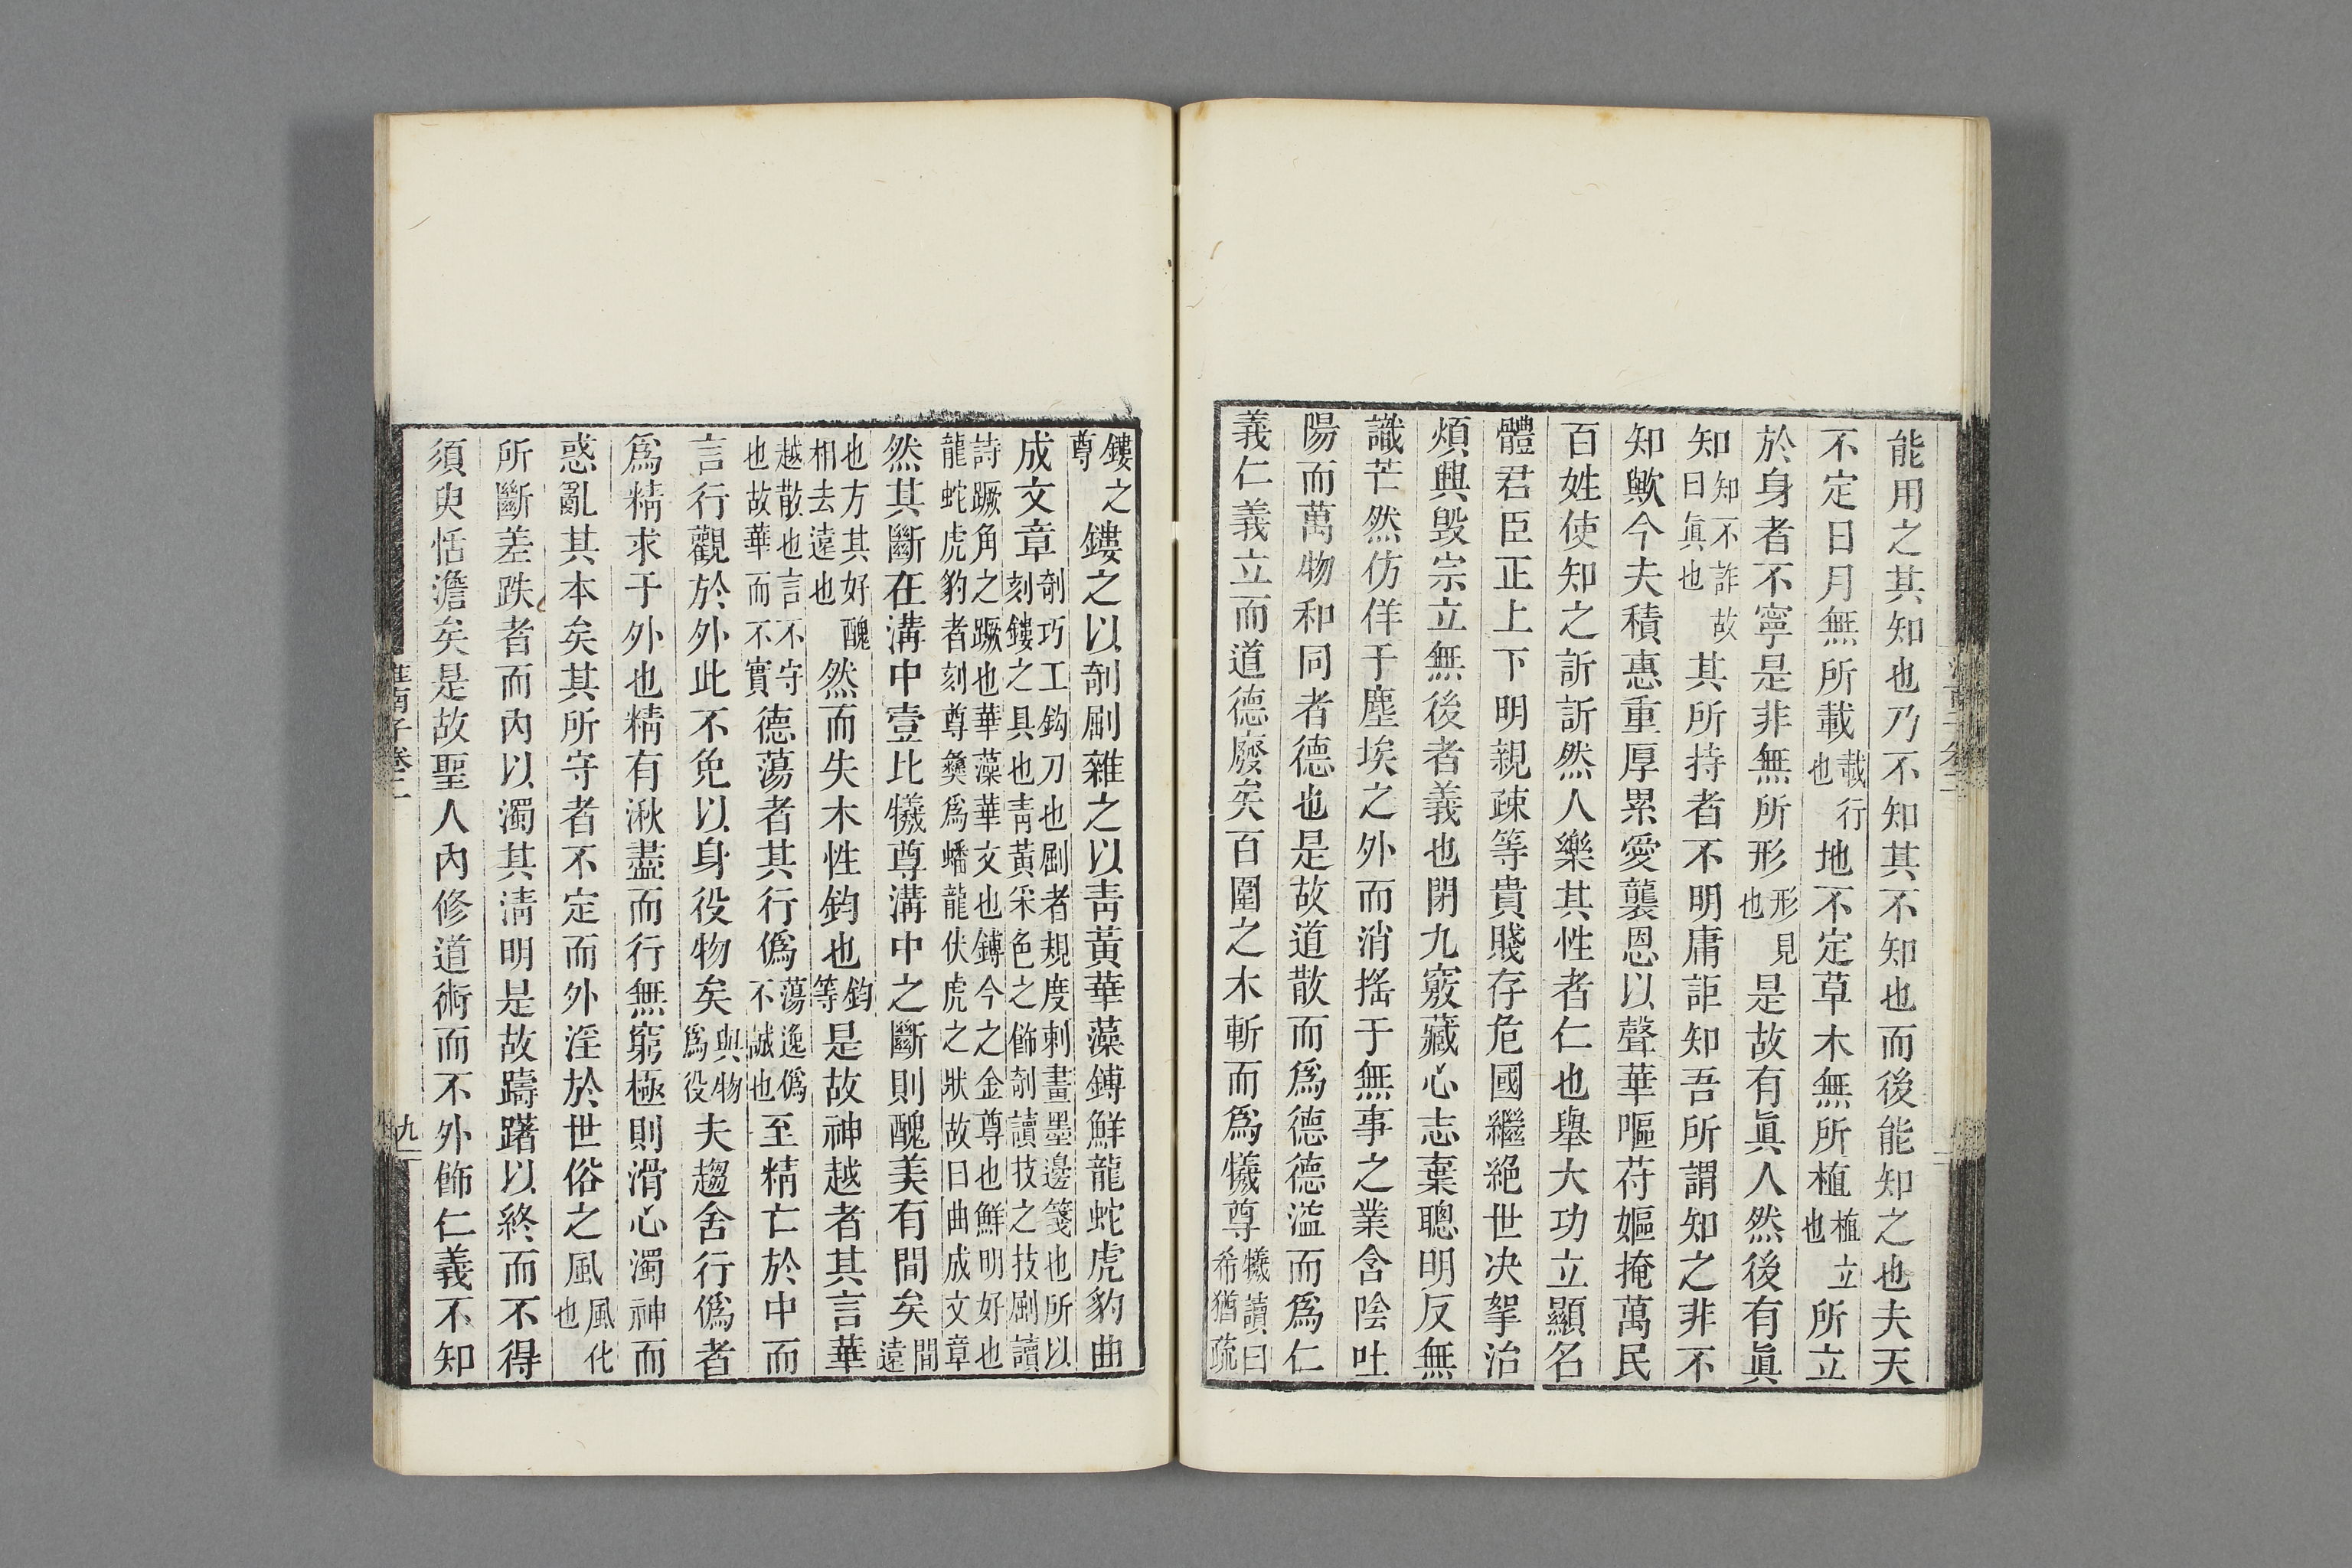 能用之其知也乃不知其不知也而後能知之也夫天
不定日月無所載載行也地不定草木無所植植立也所立
於身者不寧是非無所形形見也是故有眞人然後有眞
知知不詐故曰眞也其所持者不明庸詎知吾所謂知之非不
知歟今夫積惠重厚累愛襲恩以聲華嘔苻嫗掩萬民
百姓使知之訢訢然人樂其性者仁也舉大功立顯名
體君臣正上下明親疎等貴賤存危國繼絕世决挐治
煩興毁宗立無後者義也閉九竅藏心志棄聰明反無
識芒然仿佯于塵埃之外而消搖于無事之業含陰吐
陽而萬物和同者德也是故道散而爲德德溢而爲仁
義仁義立而道德廢矣百圍之木斬而爲犧尊犧讀曰希猶疏
鏤之尊鏤之以剞劂雜之以靑黃華藻鎛鮮龍蛇虎豹曲
成文章剞巧工鈎刀也劂者規度刺畫墨邊箋也所以刻鏤之具也靑黃采色之飾剞讀技之技劂讀
詩蹶角之蹶也華藻華文也鎛今之金尊也鮮明好也龍蛇虎豹者刻尊彝爲蟠龍伏虎之狀故曰曲成文章
然其斷在溝中壹比犧尊溝中之斷則醜美有間矣間遠
也方其好醜相去遠也然而失木性鈞也鈞等是故神越者其言華
越散也言不守也故華而不實德蕩者其行僞蕩逸僞不誠也至精亡於中而
言行觀於外此不免以身役物矣與物爲役夫趨舍行僞者
爲精求于外也精有湫盡而行無窮極則滑心濁神而
惑亂其本矣其所守者不定而外淫於世俗之風風化也
所斷差跌者而內以濁其淸明是故躊躇以終而不得
須臾恬澹矣是故聖人內修道術而不外飾仁義不知
淮南子卷二
九